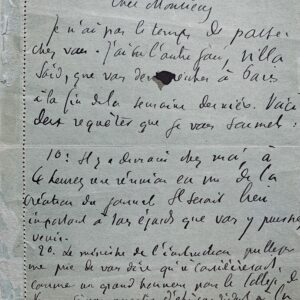 Cher Monsieur
Je n'ai pas le temps de passer
chez vous. J'ai su l'autre jour, villa
Saïd, que vous deviez à Paris
à la fin de la semaine dernière. Voici
deux requêtes que je vous soumets :
1o : Il y a demain chez moi, à
4 heures une réunion en vue de la
création du journal. Il serait bien
important à tous égards que vous y puissiez
venir.
2o. Le ministre de l'instruction publique
me prie de vous dire qu'il considérerait
comme un grand honneur pour le Collège de